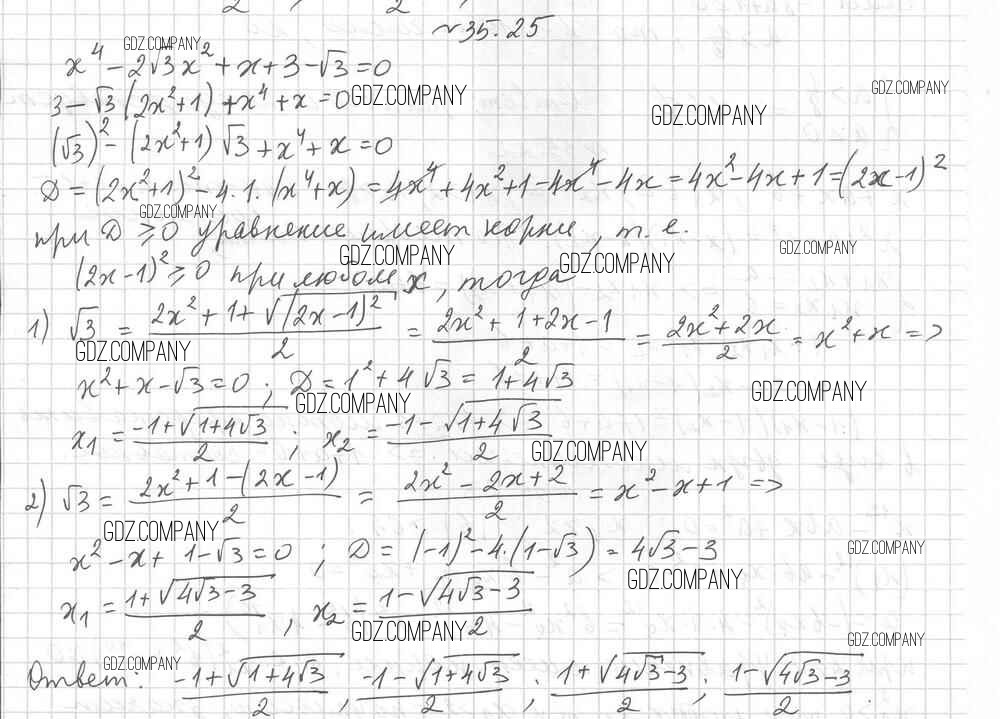 №35.25
x⁴ − 2√3x² + x + 3 − √3 = 0
GDZ.COMPANY
3 − √3(2x² + 1) + x⁴ + x = 0
GDZ.COMPANY
GDZ.COMPANY
GDZ.COMPANY
(√3)² − (2x² + 1)√3 + x⁴ + x = 0
D = (2x² + 1)² − 4·1·(x⁴ + x) = 4x⁴ + 4x² + 1 − 4x⁴ − 4x = 4x² − 4x + 1 = (2x − 1)²
GDZ.COMPANY
при D ≥ 0 уравнение имеет корни, т.е.
GDZ.COMPANY
GDZ.COMPANY
GDZ.COMPANY
(2x − 1)² ≥ 0 при любом x, тогда
1) √3 = (2x² + 1 + √(2x − 1)²)/2 = (2x² + 1 + 2x − 1)/2 = (2x² + 2x)/2 = x² + x =>
GDZ.COMPANY
x² + x − √3 = 0 ; D = 1² + 4√3 = 1 + 4√3
GDZ.COMPANY
GDZ.COMPANY
x₁ = (−1 + √(1 + 4√3))/2 ; x₂ = (−1 − √(1 + 4√3))/2
GDZ.COMPANY
2) √3 = (2x² + 1 − (2x − 1))/2 = (2x² − 2x + 2)/2 = x² − x + 1 =>
GDZ.COMPANY
x² − x + 1 − √3 = 0 ; D = (−1)² − 4·(1 − √3) = 4√3 − 3
GDZ.COMPANY
GDZ.COMPANY
x₁ = (1 + √(4√3 − 3))/2 , x₂ = (1 − √(4√3 − 3))/2
GDZ.COMPANY
GDZ.COMPANY
GDZ.COMPANY
Ответ: (−1 + √(1 + 4√3))/2 , (−1 − √(1 + 4√3))/2 ; (1 + √(4√3 − 3))/2 ; (1 − √(4√3 − 3))/2 .